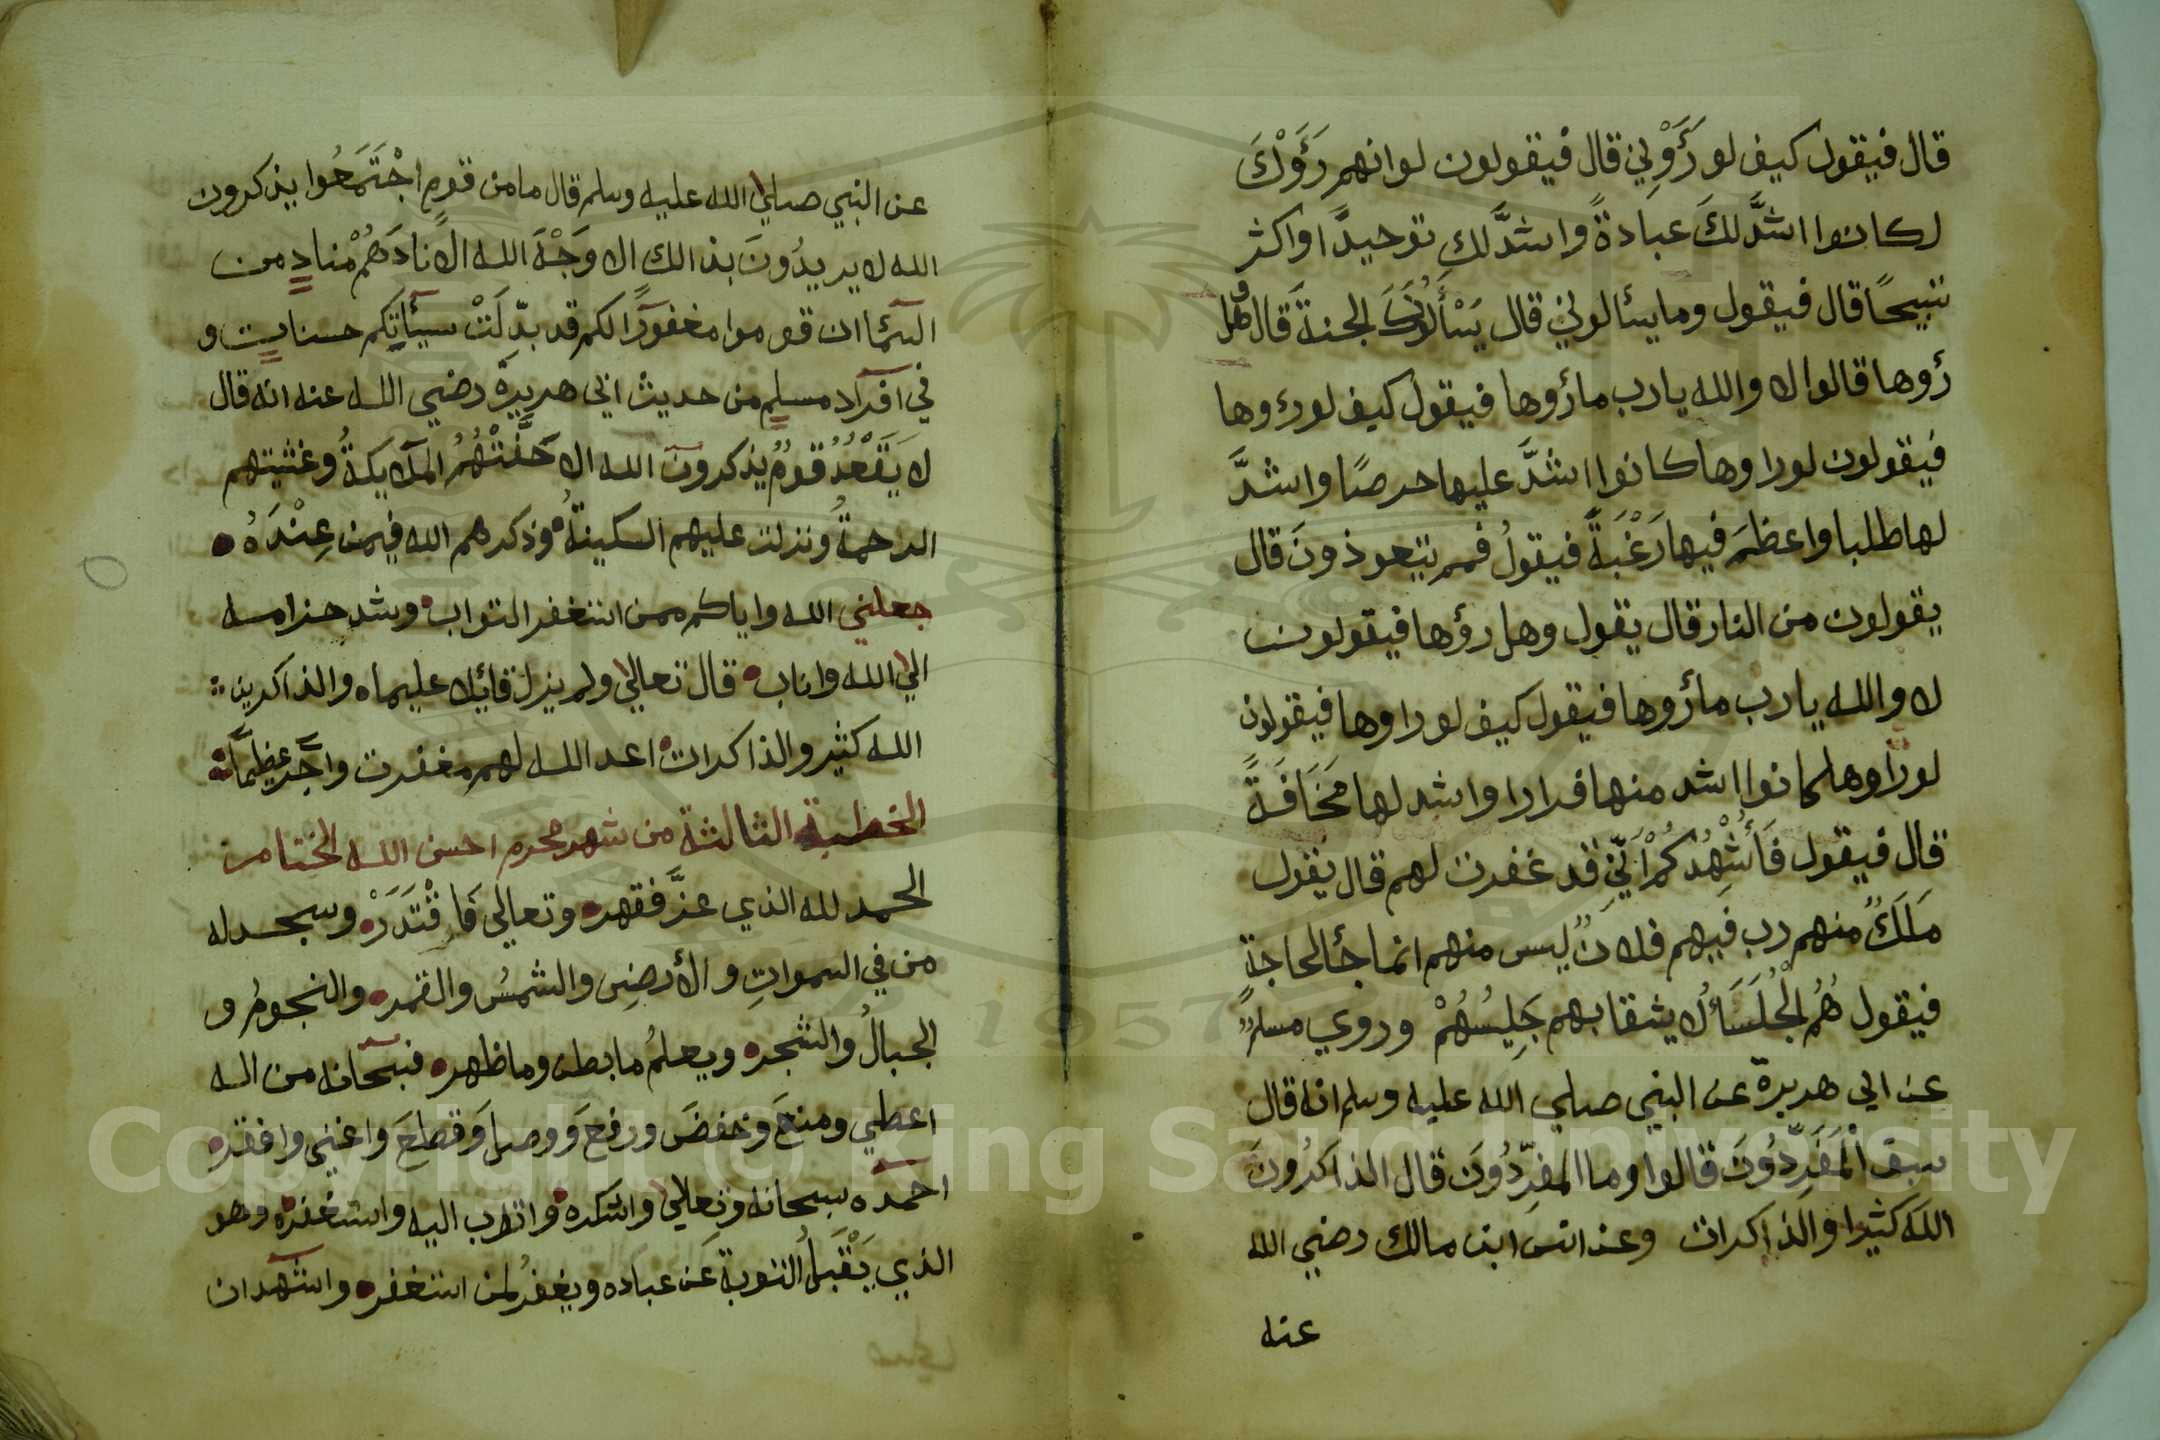 قال فيقول كيف لو رَؤَوْنِي قال فيقولون لو انهم رَؤَوْكَ
لكانوا اشدَّ لكَ عبادةً واشدَّ لك توحيدًا واكثر
تسبيحًا قال فيقول وما يسألوني قال يَسْأَلُونَكَ الجنةَ قال وهل
رؤوها قالوا لا والله يا رب ما رؤوها فيقول كيف لو رؤوها
فيقولون لو راوها كانوا اشدَّ عليها حرصًا واشدَّ
لها طلبا واعظمَ فيها رَغْبَةً فيقولُ فمم يتعوذونَ قال
يقولون من النار قال يقول وهل رؤها فيقولون
لا والله يا رب ما رؤوها فيقول كيف لو راوها فيقولون
لو راوها لكانوا اشد منها فرارا واشد لها مَخَافَةً
قال فيقول فَأُشْهِدُكُمْ أَنِّي قد غفرت لهم قال يقول
مَلَكٌ منهم رب فيهم فلانٌ ليس منهم انما جأ لحاجةٍ
فيقول هُمُ الْجُلَسَأُ لا يشقا بهم جَلِيسُهُمْ وروي مسلمٌ
عن ابي هريرة عن النبي صلي الله عليه وسلم انه قال
سبق الْمُفَرِّدُونَ قالوا وما المفرِّدُونَ قال الذاكرُونَ
الله كثيرا والذاكرات وعن انس ابن مالك رضي الله
عنه
عن النبي صلي الله عليه وسلم قال ما من قومٍ اجْتَمَعُوا يذكرون
الله لا يريدُونَ بذالك الا وَجْهَ الله الا نادَهُمْ منادٍ من
السمأ ان قوموا مغفورًا لكم قد بدّلَتْ سيئاتكم حسنات و
في افراد مسلم من حديث ابي هريرة رضي الله عنه انه قال
لا يَقْعُدُ قومٌ يذكرون الله الا حَفَّتْهُمُ الملايكةُ وغشيتهم
الرحمةُ ونزلت عليهم السكينةُ وذكرهم الله فيمن عِنْدَهُ
جعلني الله واياكم ممن استغفر التواب وشد حزامه
الي الله واناب قال تعالي ولم يزل قايلا عليما والذاكرين
الله كثير والذاكرات اعد الله لهم مغفرت واجرًا عظيمًا
الخطبة الثالثة من شهر محرم احسن الله الختام
الحمد لله الذي عزَّ فقهر وتعالي فَاقْتَدَرْ وسجد له
من في السمواتِ والأرضِ والشمسُ والقمر والنجومُ و
الجبالُ والشجر ويعلمُ ما بطن وما ظهر فسبحانه من اله
اعطي ومنعَ وخفضَ ورفعَ ووصلَ وقطعَ واغني وافقر
احمده سبحانه وتعالي واشكره واتوب اليه واستغفره وهو
الذي يَقْبَلُ التوبة عَن عباده ويغفرُ لمن استغفر واشهد ان
Copyright © King Saud University
1957